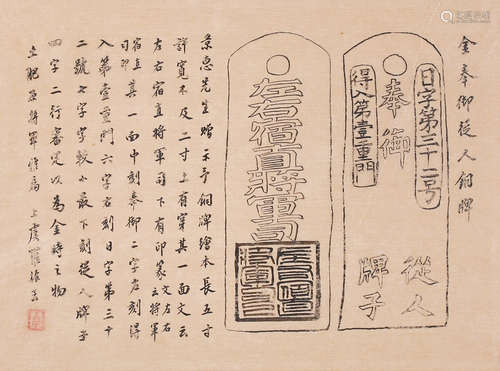 金奉御從人銅牌
日字第三十二号
奉御
得入第壹重門
從人
牌子
左右宿直將軍司
景惠先生贈示予銅牌繪本長五寸
許寬不及二寸上有穿其一面文云
左右宿直將軍司下有印篆文左右
宿直將軍
司印其一面中刻奉御二字右刻得
入第壹重門六字右刻日字第三十
二號七字字較小最下刻從人牌子
四字二行審定以為金時之物
上虞羅